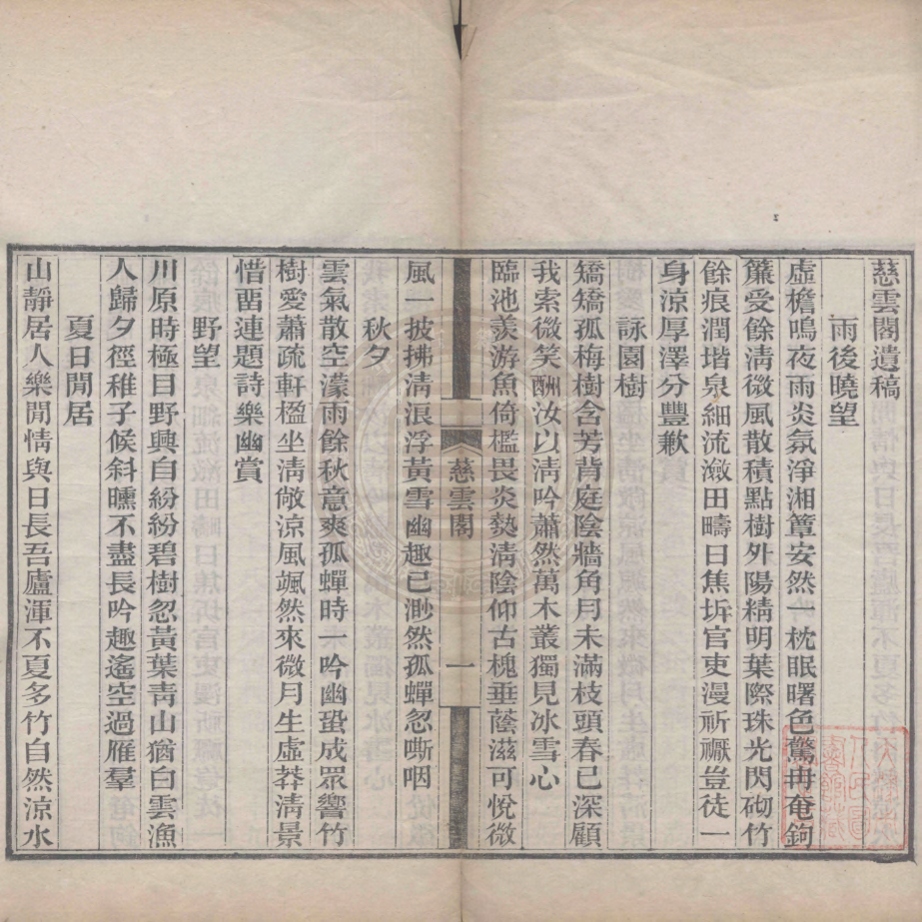 慈雲閣遺稿
雨後曉望
虛檐鳴夜雨炎氛淨湘簟安然一枕眠曙色驚冉奄鉤
簾受餘淸微風散積點樹外陽精明葉際珠光閃砌竹
餘痕潤堦泉細流瀲田疇日焦坼官吏漫祈禳豈徒一
身涼厚澤分豐歉
詠園樹
矯矯孤梅樹含芳背庭陰牆角月未滿枝頭春已深顧
我索微笑酬汝以淸吟蕭然萬木叢獨見冰雪心
臨池羨游魚倚檻畏炎埶淸陰仰古槐垂蔭滋可悅微
慈雲閣
一
風一披拂淸浪浮黃雪幽趣已渺然孤蟬忽嘶咽
秋夕
雲氣散空濛雨餘秋意爽孤蟬時一吟幽蛩成眾響竹
樹愛蕭疏軒楹坐淸敞涼風颯然來微月生虛莽淸景
惜畱連題詩樂幽賞
野望
川原時極目野興自紛紛碧樹忽黃葉靑山猶白雲漁
人歸夕徑稚子候斜曛不盡長吟趣遙空過雁羣
夏日閒居
山靜居人樂閒情與日長吾廬渾不夏多竹自然涼水